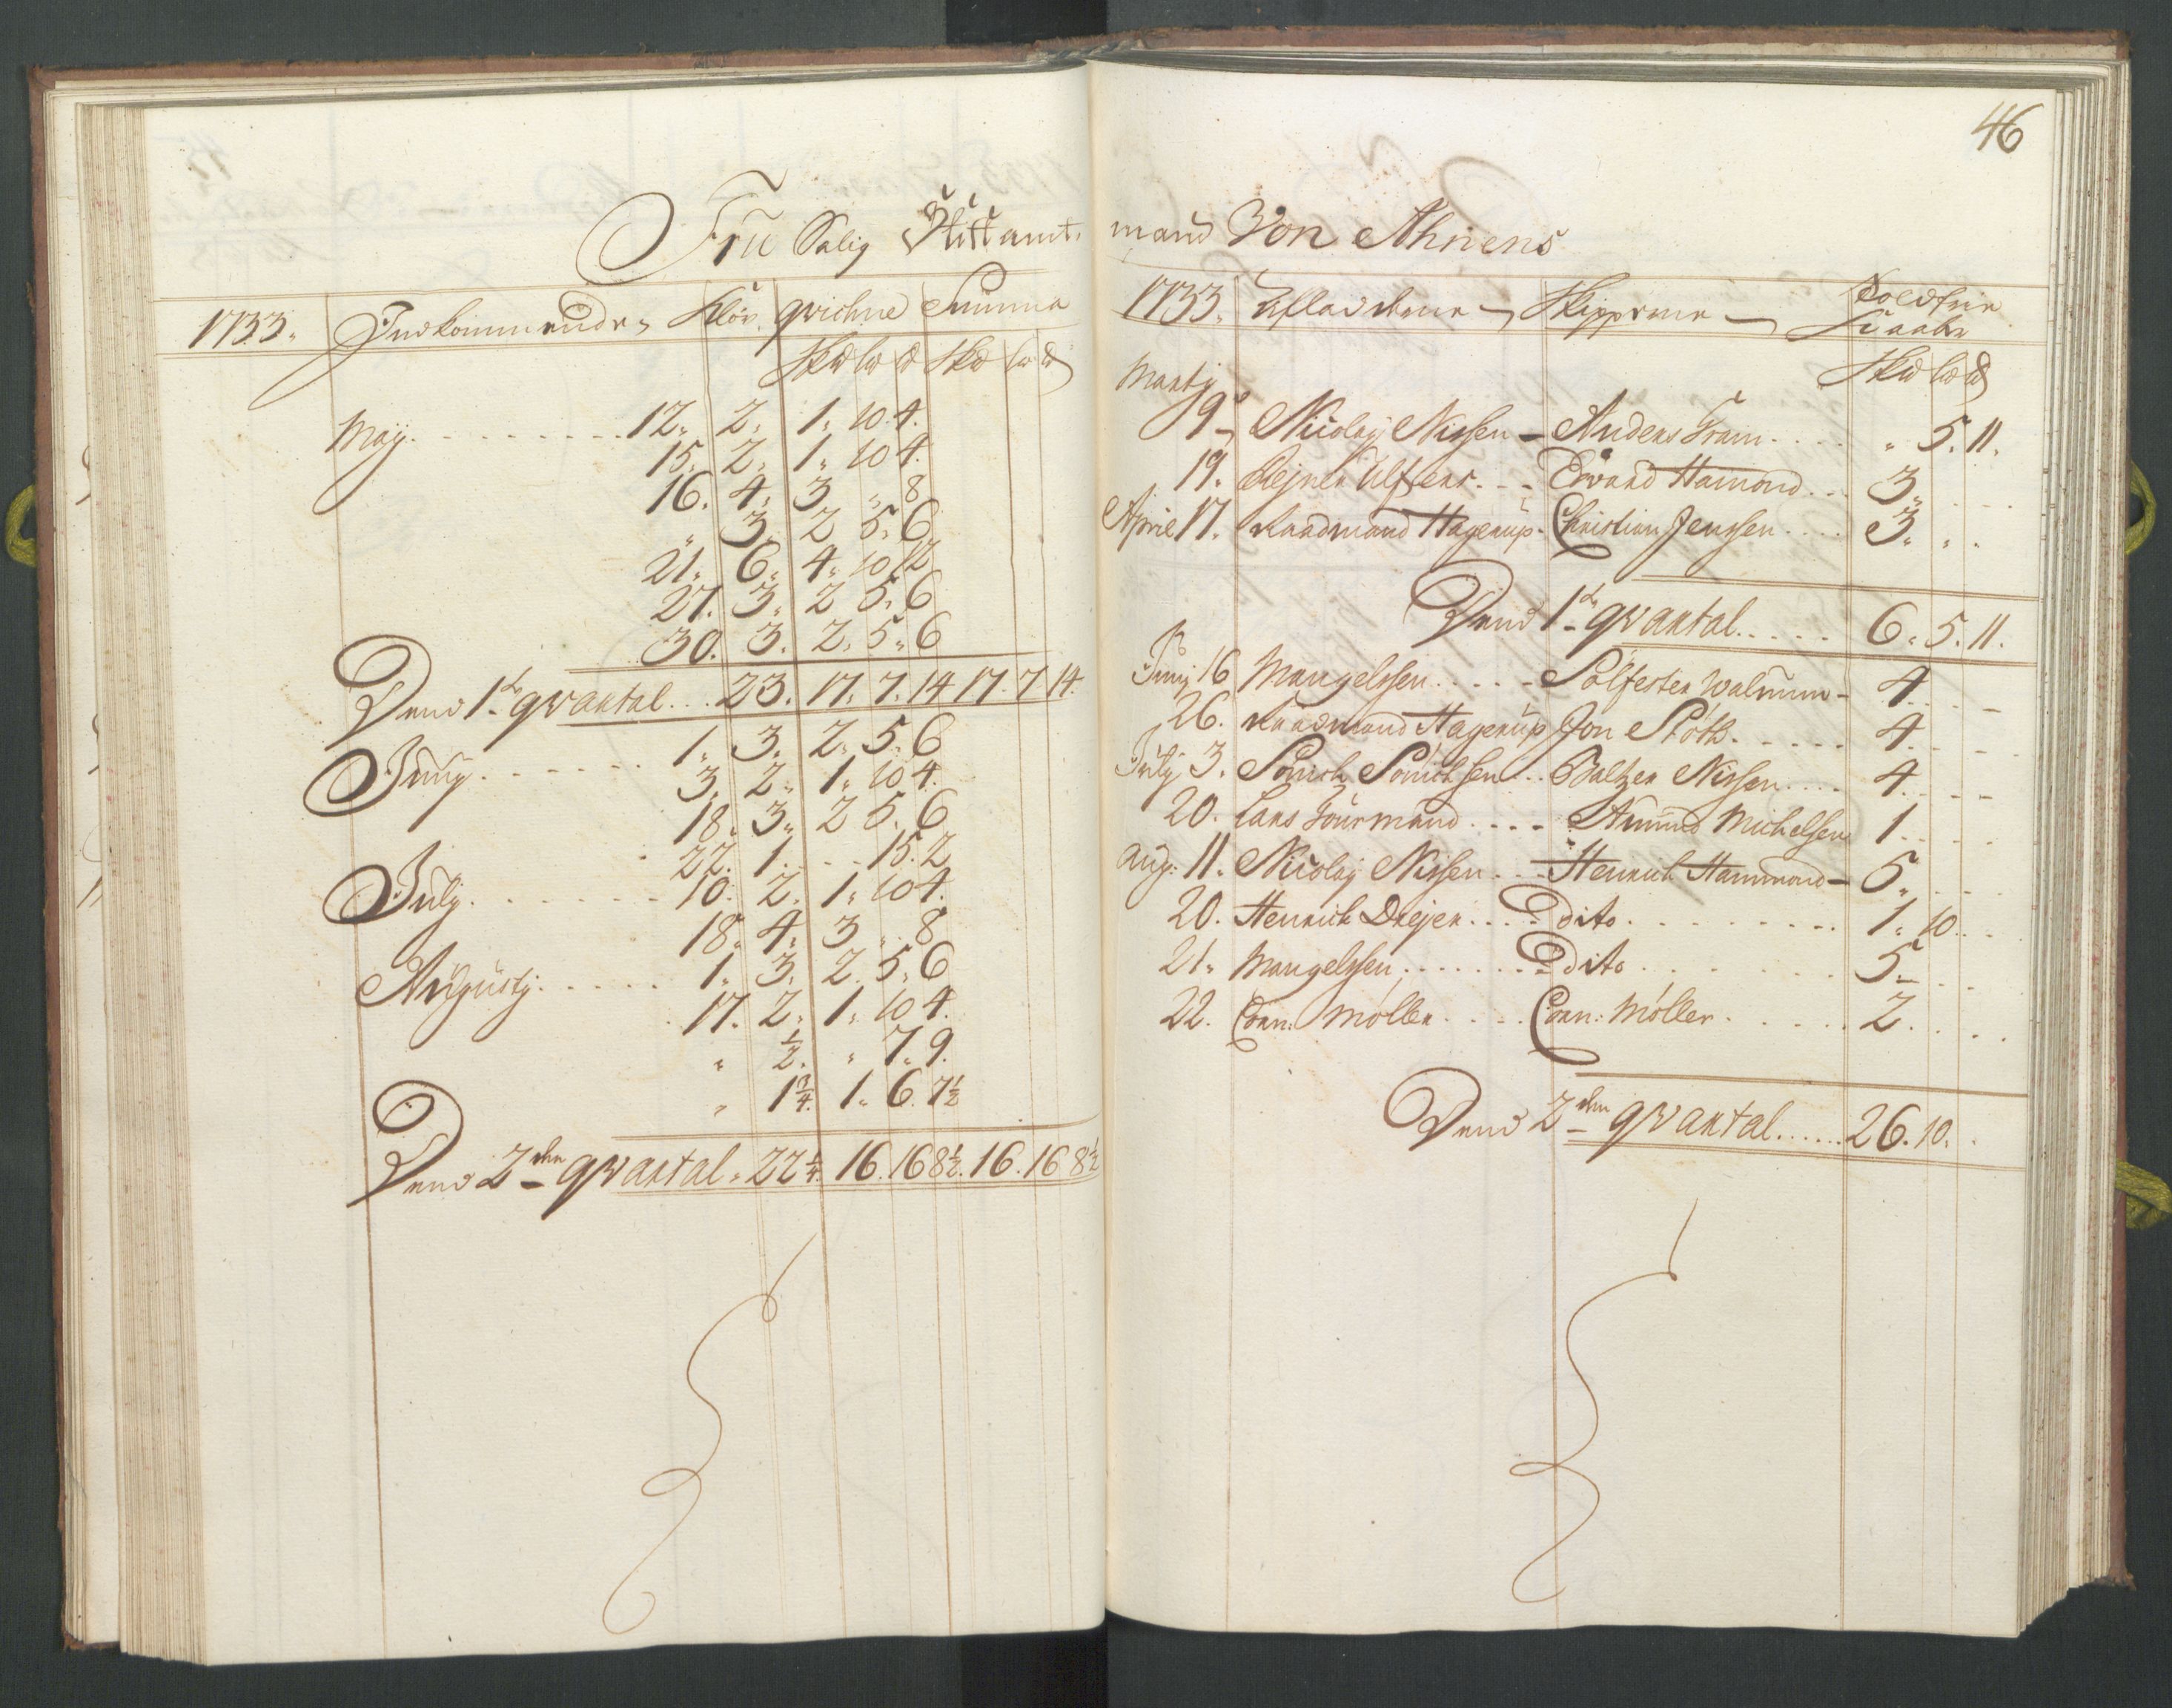 46
Frü Salig Stiftamt-
1733. Indkommende, Kløv. qvichne Summa
Skd lð ð Skd lð ð
Maÿ. . . . . . . . . 12. 2. 1. 10. 4.
15. 2. 1. 10 4.
16. 4. 3 " 8
" 3. 2 5. 6
21. 6. 4. 10 12
27. 3. 2 5. 6
30. 3. 2. 5. 6
Dend 1te qvartal . . . 23. 17. 7. 14 17. 7 14.
Junÿ . . . . . . 1. 3. 2. 5. 6
3. 2. 1. 10 4.
18. 3. 2 5. 6
22. 1. . . 15. 2
Julÿ . . . . . . . 10. 2. 1. 10 4.
18. 4. 3 . 8
Augustÿ . . . . . 1. 3. 2. 5. 6
17. 2. 1. 10 4.
" ½. " 7. 9.
" 1¾. 1. 6. 7½
Dend 2den qvartal. 22¼. 16. 16 8½. 16. 16 8½
mand Von Ahnens
1733. Skipperne Toldfrie
Skd lð ð
Martÿ
9. Nicolaÿ Nissen - Anders Fram. . . . " 5. 11.
19. Rejner Ulfsens. . - Edvard Hamond . . 3. . .
April 17. Raadmand Hagerup. Christian Jenssen . . . . 3. . .
Dend 1te qvartal . . . . . 6. 5. 11.
Junÿ 16 Mangelssen . . . . - Solfester Walrumm - 4. . . -
26. Raadmand Hagerup Jon Stotk . . . . . 4. . . -
Julÿ 3. Sönich Sönichsen . . Baltzer Nissen . . . . 4. . . -
20. Lars Föurmand . . . - Amund Michelsen 1 . . .
Aug: 11. Nicolaÿ Nissen . . - Henrich Hammond - 5. . .
20. Henrich Drejer . . . . Dito . . . . . . . . . 1. 10. . .
21. Mangelssen . . . . . . . Dito . . . . . . . . 5 - . .
22. Corn: Møller . . . . Corn: Møller . . . . . . 2 . . . .
Dend 2den qvartal . . . . . . 26. 10. .